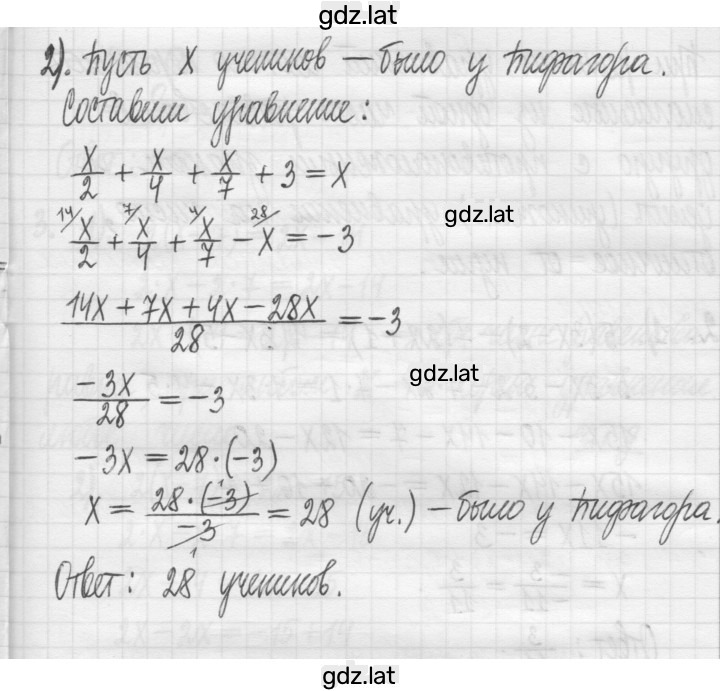 gdz.lat
2). Пусть x учеников – было у Пифагора.
Составим уравнение:
x/2 + x/4 + x/7 + 3 = x
gdz.lat
14/ x/2 + 7/ x/4 + 4/ x/7 – 28/ x = –3
(14x + 7x + 4x – 28x)/28 = –3
gdz.lat
–3x/28 = –3
–3x = 28·(–3)
x = (28·(–3))/(–3) = 28 (уч.) – было у Пифагора.
Ответ: 28 учеников.
gdz.lat